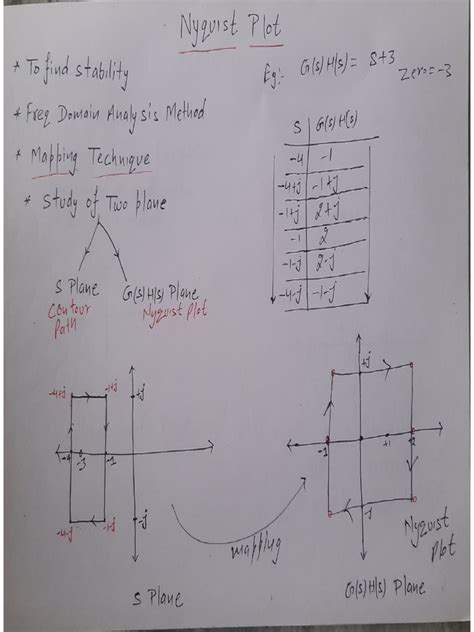 Nyquist Plot
* To find stability
* Freq Domain Analysis Method
* Mapping Technique
* Study of Two plane
S Plane
Contour
Path
G(s)H(s) Plane
Nyquist Plot
Eg:- G(s)H(s) = S+3
Zero=-3
S | G(s)H(s)
-4 | -1
-4+j | -1+j
-1+j | 2+j
-1 | 2
-1-j | 2-j
-4-j | -1-j
-4+j
-1+j
+j
-4
-3
-1
-4-j
-1-j
-j
S Plane
mapping
+j
-1
+1
2
-j
Nyquist
Plot
G(s)H(s) Plane